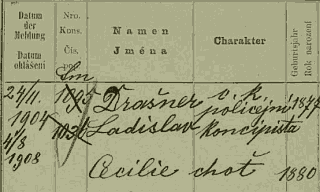 Datum der Meldung
Datum ohlášení
Nro. Kons.
Čís. pop.
Namen
Jména
Charakter
Geburtsjahr
Rok narození
24/11. 1895 Drašner c. k. policejní 187
1904 Ladislav koncipista
4/8
1908
Cecilie choť 1880